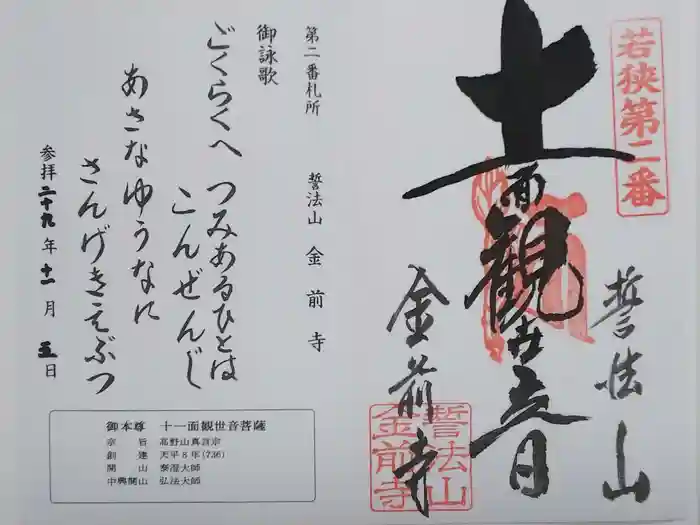 若狭第二番
誓法山
十一面観世音
金前寺
誓法山
金前寺
第二番札所　誓法山 金前寺
御詠歌
ごくらくへ つみあるひとは
こんぜんじ
あさなゆうなに
さんげきえぶつ
参拝二十九年十一月五日
御本尊 十一面観世音菩薩
宗旨 高野山真言宗
創建 天平8年(736)
開山 泰澄大師
中興開山 弘法大師